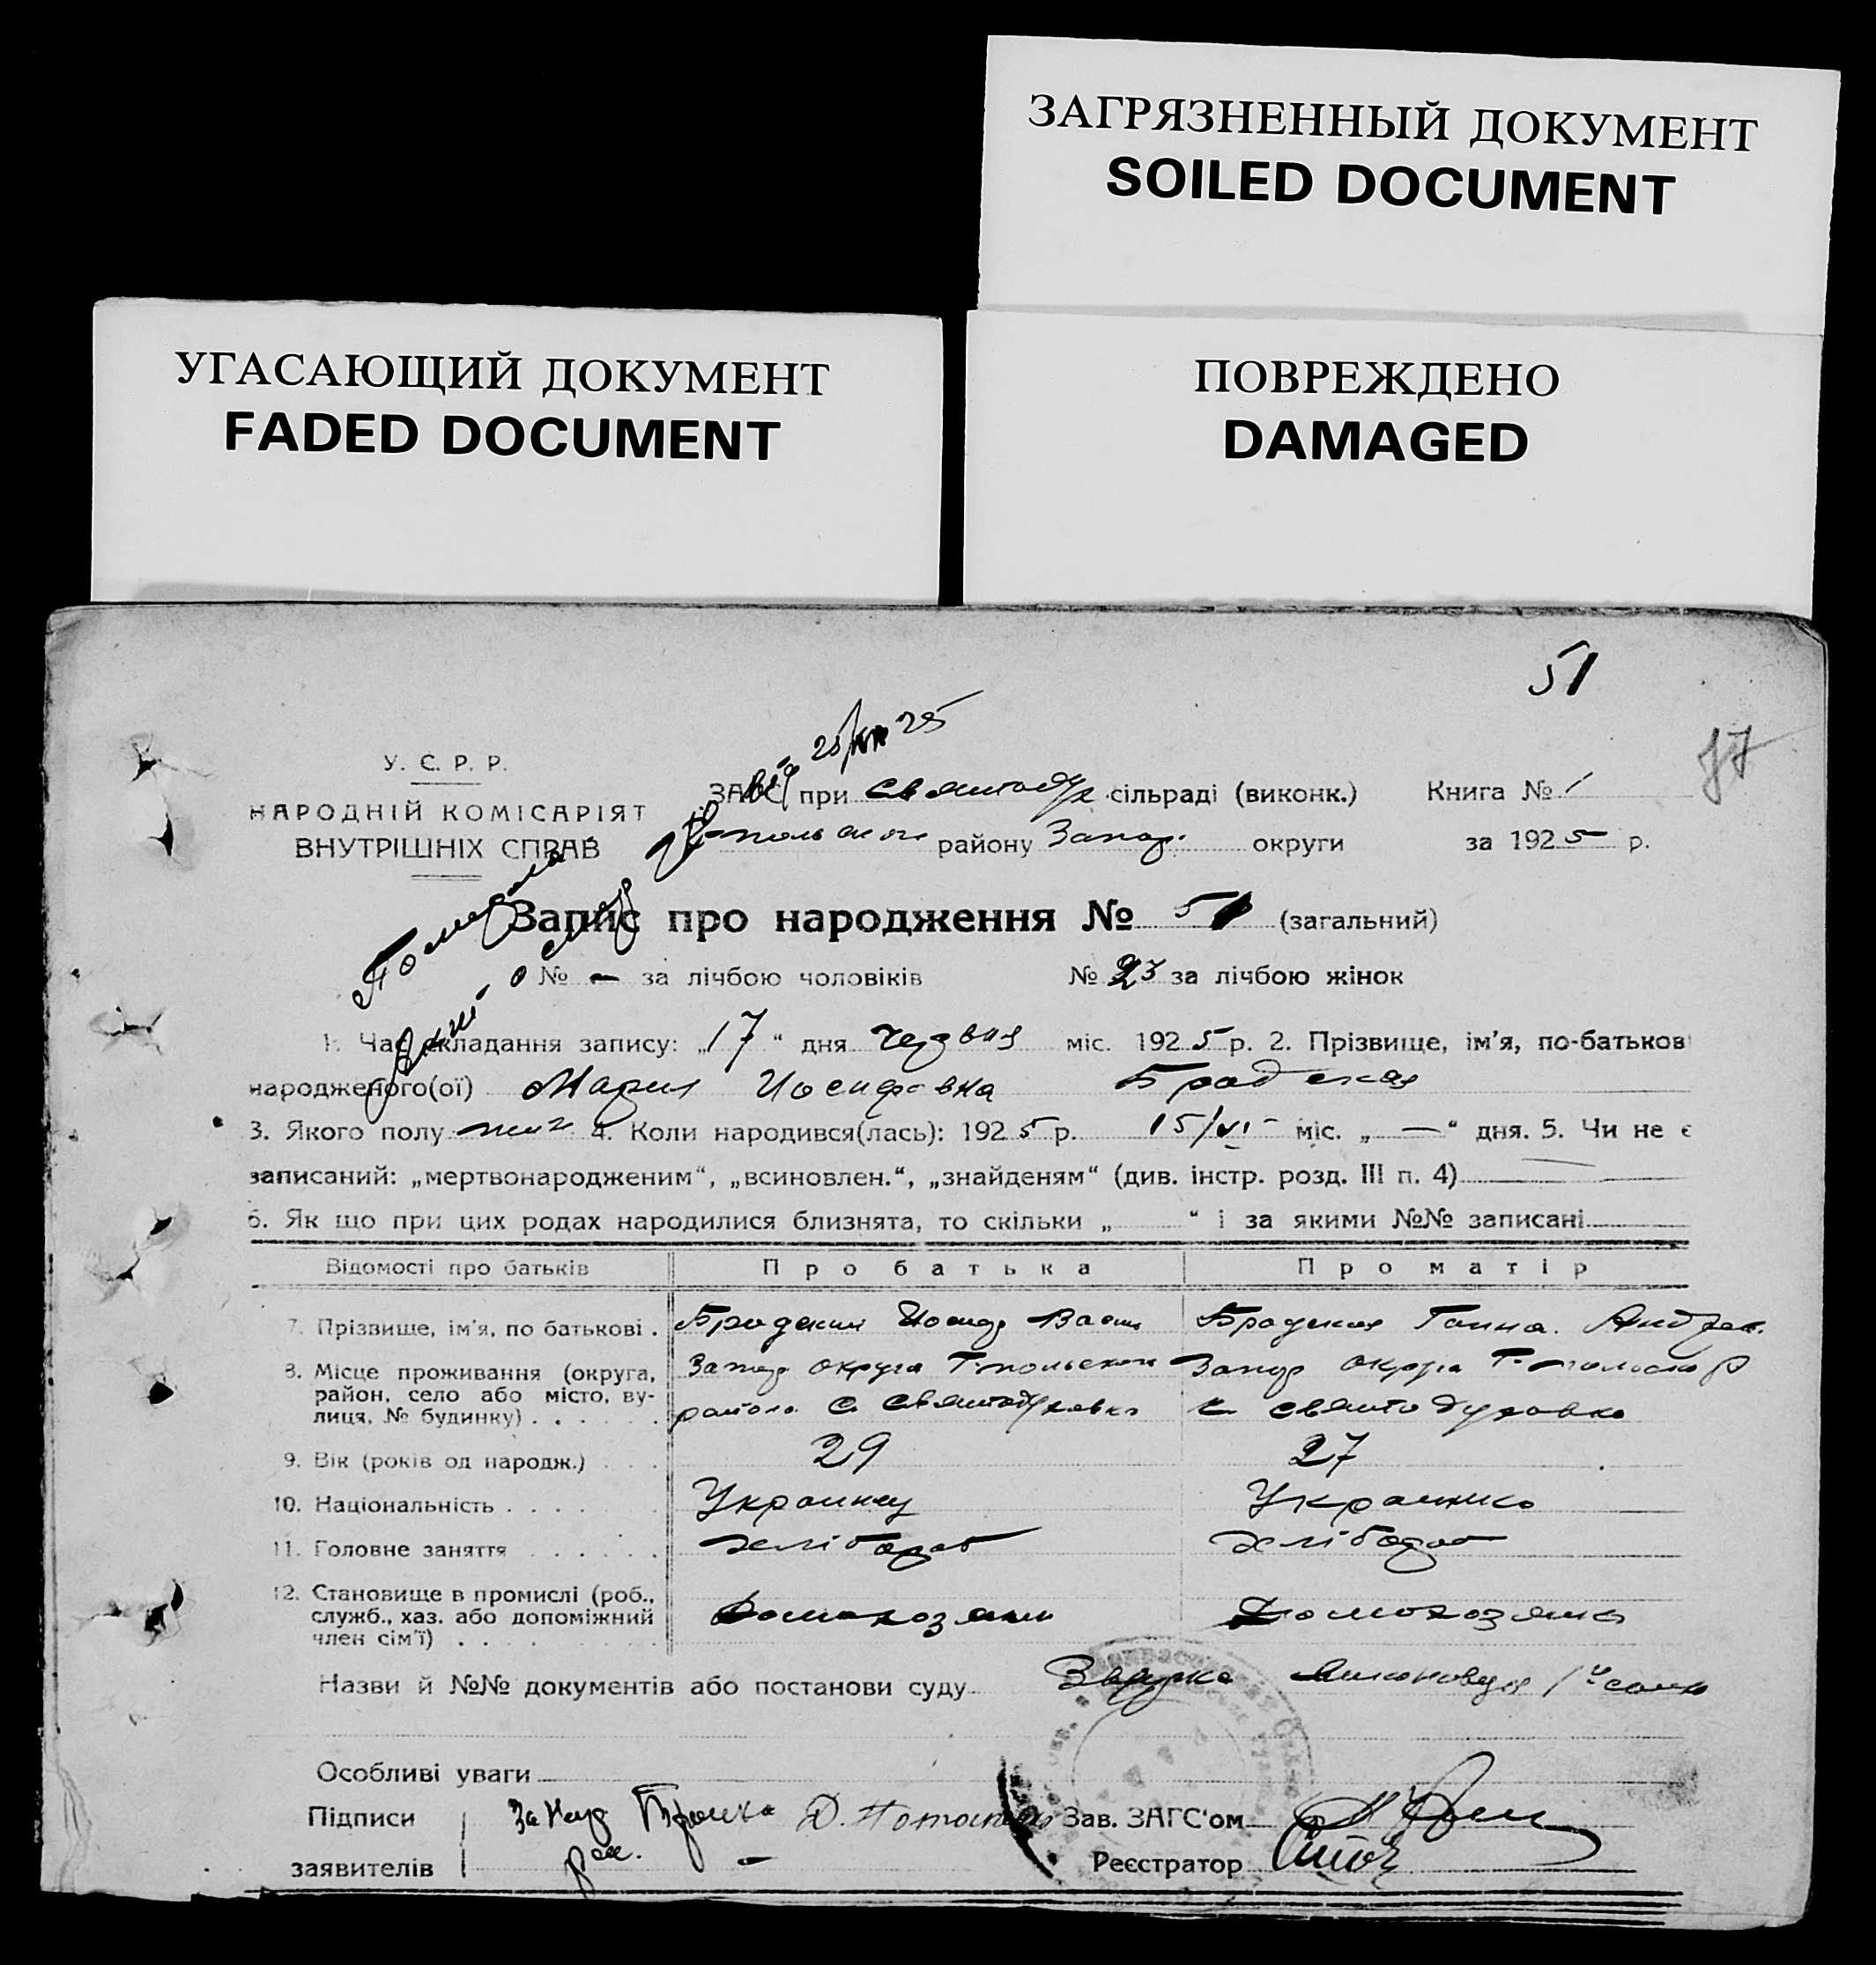 ЗАГРЯЗНЕННЫЙ ДОКУМЕНТ
SOILED DOCUMENT
УГАСАЮЩИЙ ДОКУМЕНТ
FADED DOCUMENT
ПОВРЕЖДЕНО
DAMAGED
51
У. С. Р. Р.
НАРОДНІЙ КОМІСАРІЯТ
ВНУТРІШНІХ СПРАВ
ЗАГС при сільраді (виконк.) Книга № 1
району Запор. округи за 1925 р.
Запис про народження № 51 (загальний)
№ — за лічбою чоловіків № 23 за лічбою жінок
1. Час складання запису: „17“ дня червня міс. 1925 р. 2. Прізвище, ім'я, по-батькові
народженого(ої) Мария Иосифовна Бродская
3. Якого полу жін 4. Коли народився(лась): 1925 р. 15/VI- міс. „—“ дня. 5. Чи не є
записаний: „мертвонародженим“, „всиновлен.“, „знайденям“ (див. інстр. розд. III п. 4)
6. Як що при цих родах народилися близнята, то скільки „ “ і за якими №№ записані
Відомості про батьків Про батька Про матір
7. Прізвище, ім'я, по батькові . Бродский Иосиф Васил Бродская Ганна Андрее.
8. Місце проживання (округа, район, село або місто, вулиця, № будинку) . . . . . . Запор округа Т-польского района С. Святодуховка Запор округа с Святодуховка
9. Вік (років од народж.) . . . 29 27
10. Національність . . . . . Украинец Украинка
11. Головне заняття . . . . . . хлібороб хлібороб
12. Становище в промислі (роб., служб., хаз. або допоміжний член сім'ї) . . . домохозяин домохозяика
Назви й №№ документів або постанови суду
Особливі уваги
Підписи За Неук Д. Зав. ЗАГС'ом
заявителів рос. — Реєстратор